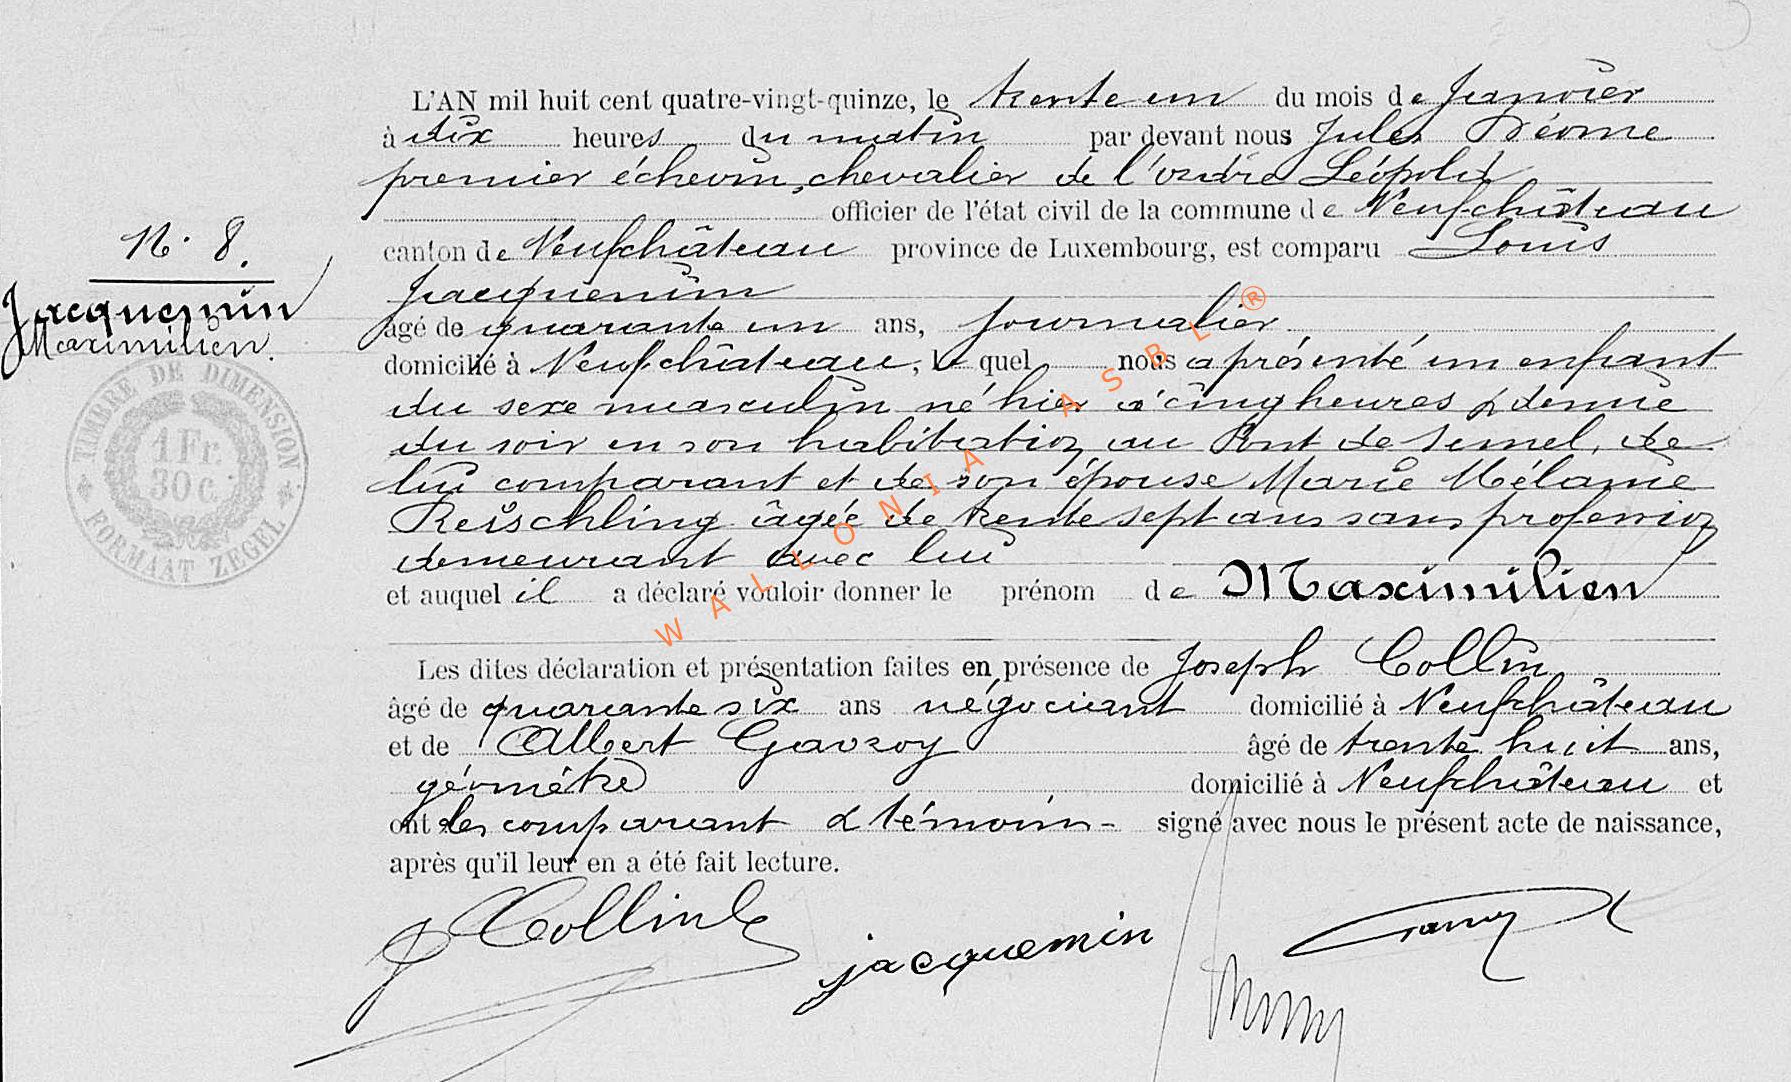 L'AN mil huit cent quatre-vingt-quinze, le trente un du mois de Janvier
à dix heures du matin par devant nous Jules
premier échevin, chevalier de l'ordre Léopold
officier de l'état civil de la commune de Neufchâteau
N. 8.
canton de Neufchâteau province de Luxembourg, est comparu Louis
Jacquemin
Jacquemin
Maximilien.
âgé de quarante un ans, journalier
domicilié à Neufchâteau, le quel nous a présenté un enfant
TIMBRE DE DIMENSION
1 Fr.
30 c.
FORMAAT ZEGEL
du sexe masculin né hier à cinq heures & demie
du soir en son habitation au Pont de Semel, de
lui comparant et de son épouse Marie Mélanie
Reischling âgée de trente sept ans sans profession
demeurant avec lui
et auquel il a déclaré vouloir donner le prénom de Maximilien
WALLONIA ASBL ®
Les dites déclaration et présentation faites en présence de Joseph Collin
âgé de quarante six ans négociant domicilié à Neufchâteau
et de Albert Gavroy âgé de trente huit ans,
géomètre domicilié à Neufchâteau et
ont les comparant & témoins signé avec nous le présent acte de naissance,
après qu'il leur en a été fait lecture.
J Collin
jacquemin